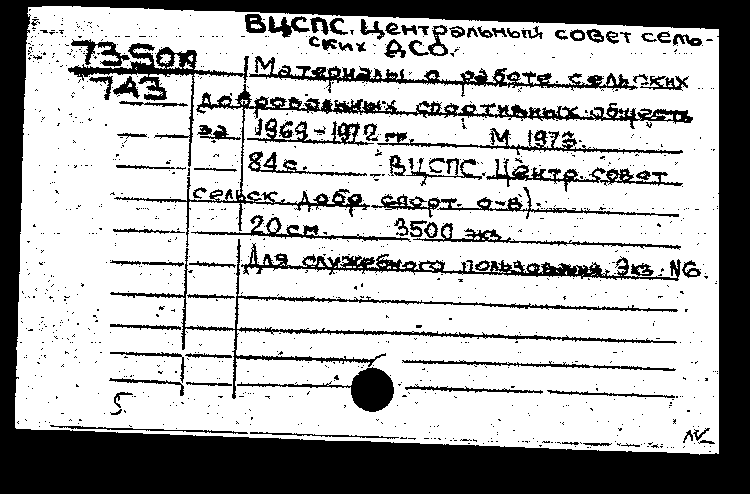 ВЦСПС. Центральный совет сель-
ских ДСО.
73-50п
743
Материалы о работе сельских
добровольных спортивных обществ
за 1969-1972 гг. М, 1973.
84 с. ВЦСПС. Центр. совет
сельск. добр. спорт. о-в).
20 см. 3500 экз.
Для служебного пользования. Экз. N6.
5